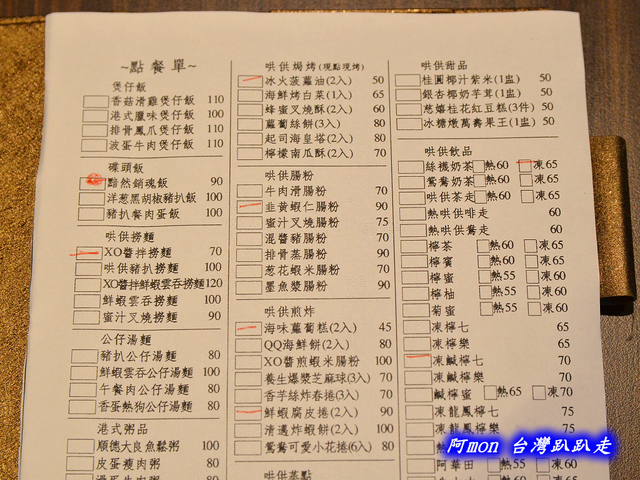 ~點餐單~
煲仔飯
香菇滑雞煲仔飯 110
港式臘味煲仔飯 100
排骨鳳爪煲仔飯 110
波蛋牛肉煲仔飯 110
碟頭飯
黯然銷魂飯 90
洋葱黑胡椒豬扒飯 100
豬扒餐肉蛋飯 100
哄供撈麵
XO醬拌撈麵 70
哄供豬扒撈麵 100
XO醬拌鮮蝦雲吞撈麵 120
鮮蝦雲吞撈麵 100
蜜汁叉燒撈麵 90
公仔湯麵
豬扒公仔湯麵 80
鮮蝦雲吞公仔湯麵 100
午餐肉公仔湯麵 80
香蛋熱狗公仔湯麵 80
港式粥品
順德大良魚鬆粥 100
皮蛋瘦肉粥 80
哄供焗烤(現點現烤)
冰火菠蘿油(2入) 50
海鮮烤白菜(1入) 65
蜂蜜叉燒酥(2入) 60
蘿蔔絲餅(3入) 80
起司海皇塔(2入) 80
檸檬南瓜酥(2入) 70
哄供腸粉
牛肉滑腸粉 70
韭黃蝦仁腸粉 90
蜜汁叉燒腸粉 75
混醬豬腸粉 70
排骨蒸腸粉 90
葱花蝦米腸粉 70
墨魚漿腸粉 90
哄供煎炸
海味蘿蔔糕(2入) 45
QQ海鮮餅(2入) 80
XO醬煎蝦米腸粉 100
養生爆漿芝麻球(3入) 70
香芋絲炸春捲(3入) 70
鮮蝦腐皮捲(2入) 90
清邁炸蝦餅(2入) 100
鴛鴦可愛小花捲(6入) 80
哄供蒸點
哄供甜品
桂圓椰汁紫米(1盅) 50
銀杏椰奶芋茸(1盅) 50
慈嬉桂花紅豆糕(3件) 50
冰糖燉萬壽果王(1盅) 50
哄供飲品
絲襪奶茶 熱60 凍65
鴛鴦奶茶 熱60 凍65
哄供茶走 熱60 凍65
熱哄供啡走 60
熱哄供鴦走 60
檸茶 熱60 凍65
檸賓 熱60 凍65
檸蜜 熱55 凍60
檸柚 熱55 凍60
菊蜜 熱55 凍60
凍檸七 65
凍檸樂 65
凍鹹檸七 70
凍鹹檸樂 70
鹹檸蜜 熱65 凍70
凍龍鳳檸七 75
凍龍鳳檸樂 75
阿華田 熱55 凍60
阿mon 台灣趴趴走